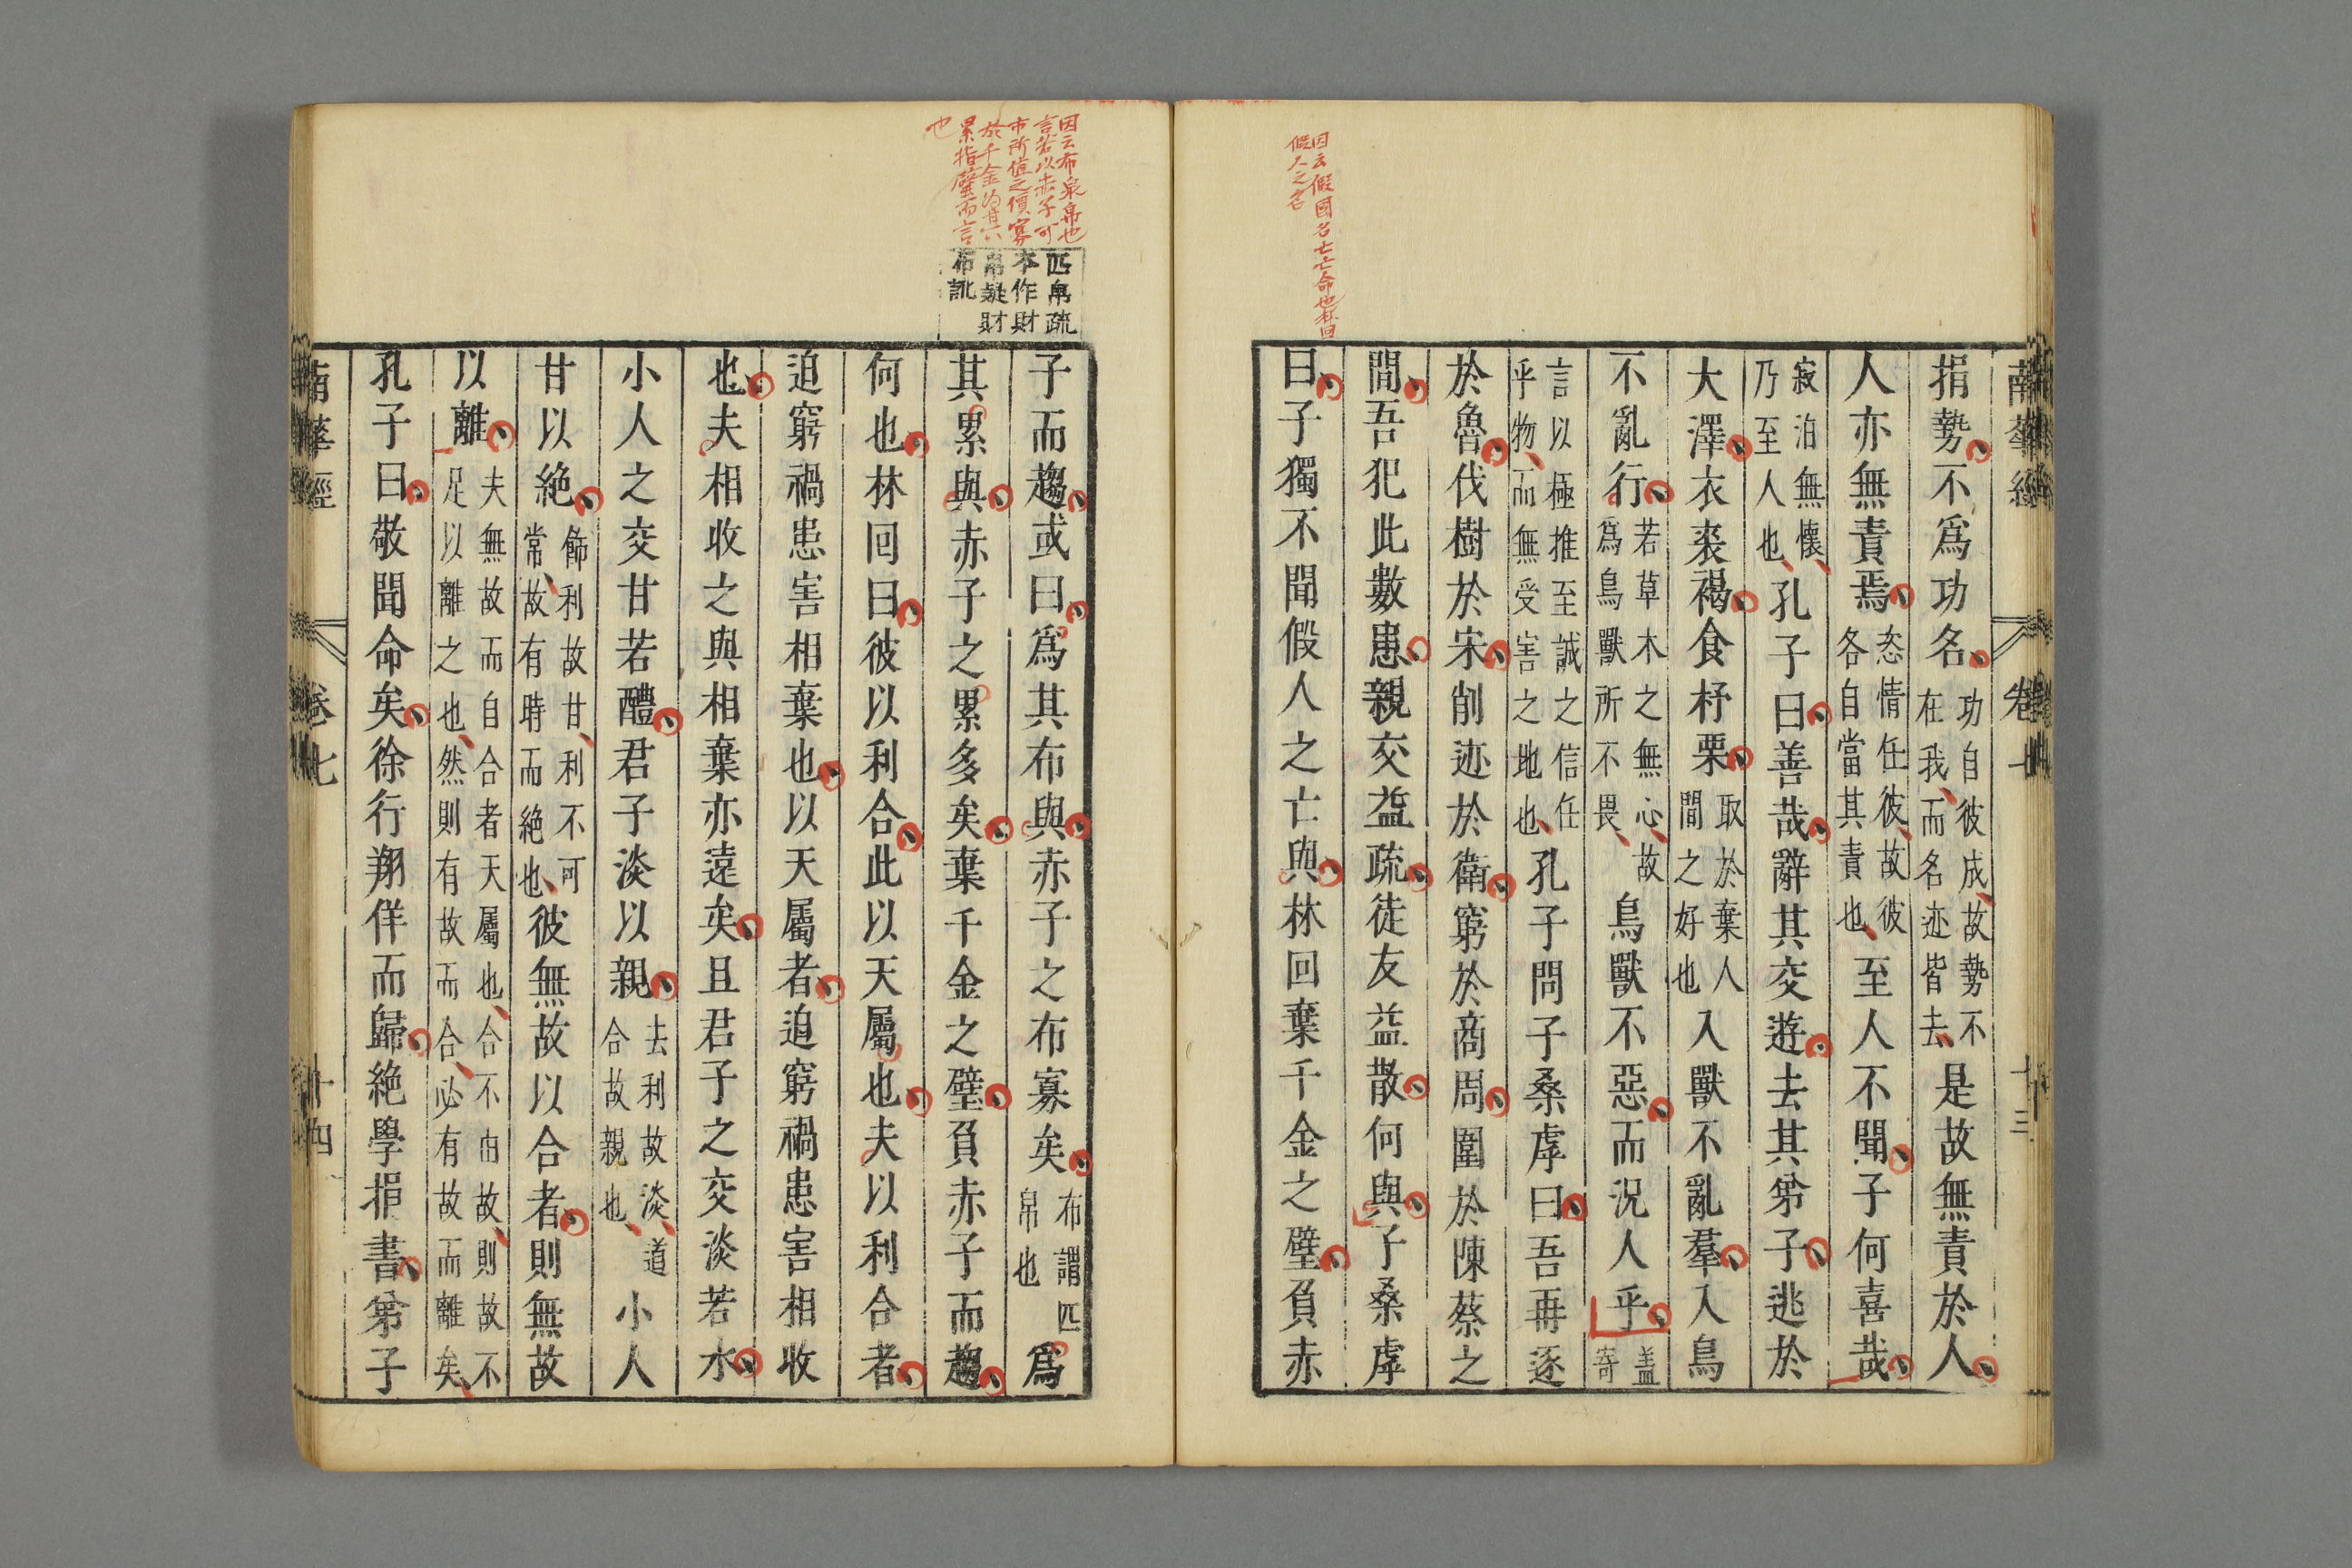 南華經
卷七
十三
因云假國名亡亡命也林回
假人之名
捐勢不爲功名功自彼成故勢不
在我而名迹皆去是故無責於人
人亦無責焉恣情任彼故彼
各自當其責也至人不聞子何喜哉
寂泊無懷
乃至人也孔子曰善哉辭其交遊去其弟子逃於
大澤衣裘褐食杼栗取於棄人
間之好也入獸不亂羣入鳥
不亂行若草木之無心故
爲鳥獸所不畏鳥獸不惡而況人乎盖
寄
言以極推至誠之信任
乎物而無受害之地也孔子問子桑虖曰吾再逐
於魯伐樹於宋削迹於衛窮於商周圍於陳蔡之
間吾犯此數患親交益疏徒友益散何與子桑虖
曰子獨不聞假人之亡與林回棄千金之璧負赤
因云布泉帛也
言若以赤子可
市所值之價寡
於千金
累指璧而言
也
匹帛疏
本作財
帛疑財
布訛
子而趨或曰爲其布與赤子之布寡矣布謂匹
帛也爲
其累與赤子之累多矣棄千金之璧負赤子而趨
何也林回曰彼以利合此以天屬也夫以利合者
迫窮禍患害相棄也以天屬者迫窮禍患害相收
也夫相收之與相棄亦遠矣且君子之交淡若水
小人之交甘若醴君子淡以親去利故淡道
合故親也小人
甘以絶飾利故甘利不可
常故有時而絶也彼無故以合者則無故
以離夫無故而自合者天屬也合不由故則故不
足以離之也然則有故而合必有故而離矣
孔子曰敬聞命矣徐行翔佯而歸絶學捐書弟子
南華經
卷七
十四